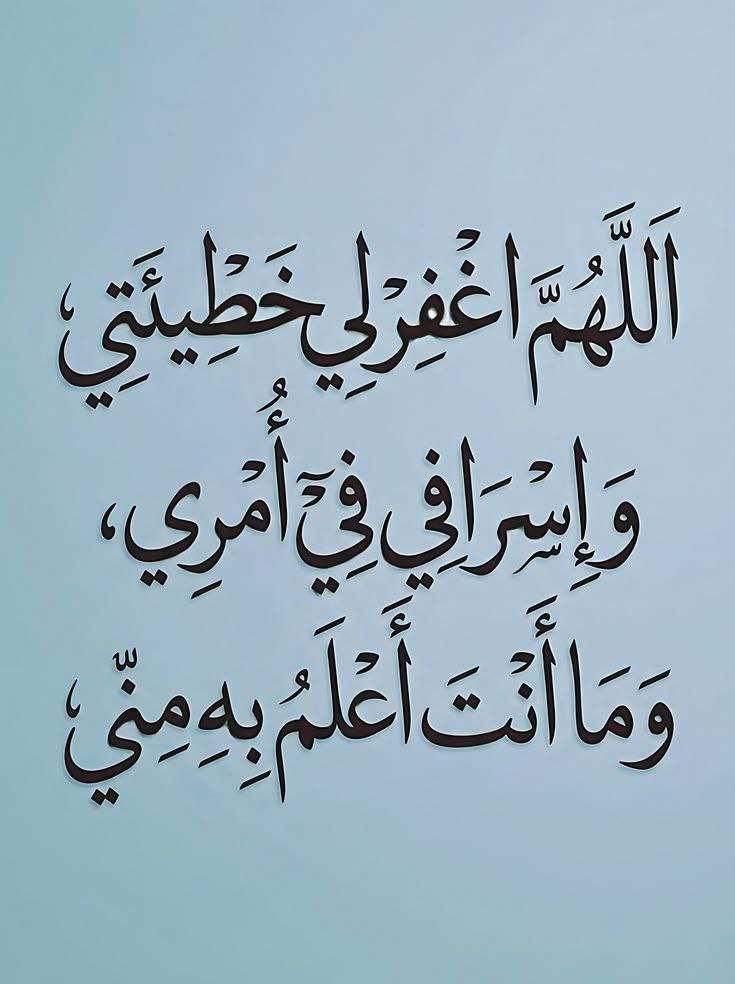 اَللَّهُمَّ اغْفِرْ لِي خَطِيئَتِي،
وَإِسْرَافِي فِيٓ أُمْرِي،
وَمَا أَنْتَ أَعْلَمُ بِهِ مِنِّي،